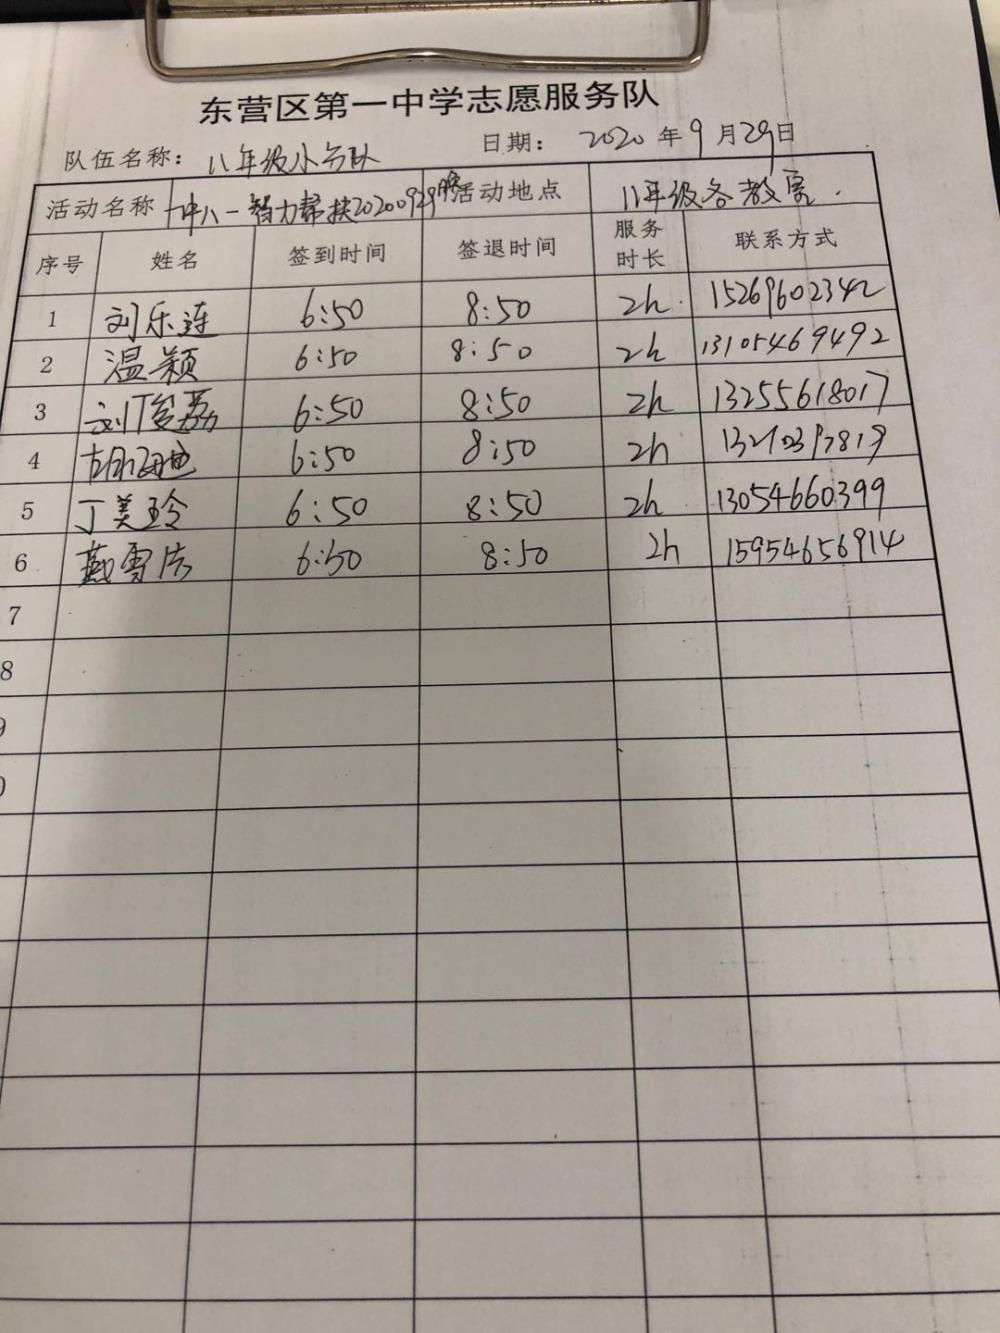 东营区第一中学志愿服务队
队伍名称: 八年级小分队 日期: 2020 年 9 月 29 日
活动名称 一中八一智力帮扶20200929晚 活动地点 八年级各教室.
序号 姓名 签到时间 签退时间 服务时长 联系方式
1 刘乐莲 6:50 8:50 2h. 15269602342
2 温颖 6:50 8:50 2h 13105469492
3 刘俊荔 6:50 8:50 2h 13255618017
4 胡海艳 6:50 8:50 2h
5 丁美玲 6:50 8:50 2h 13054660399
6 戴雪 6:50 8:50 2h 15954656914
7
8